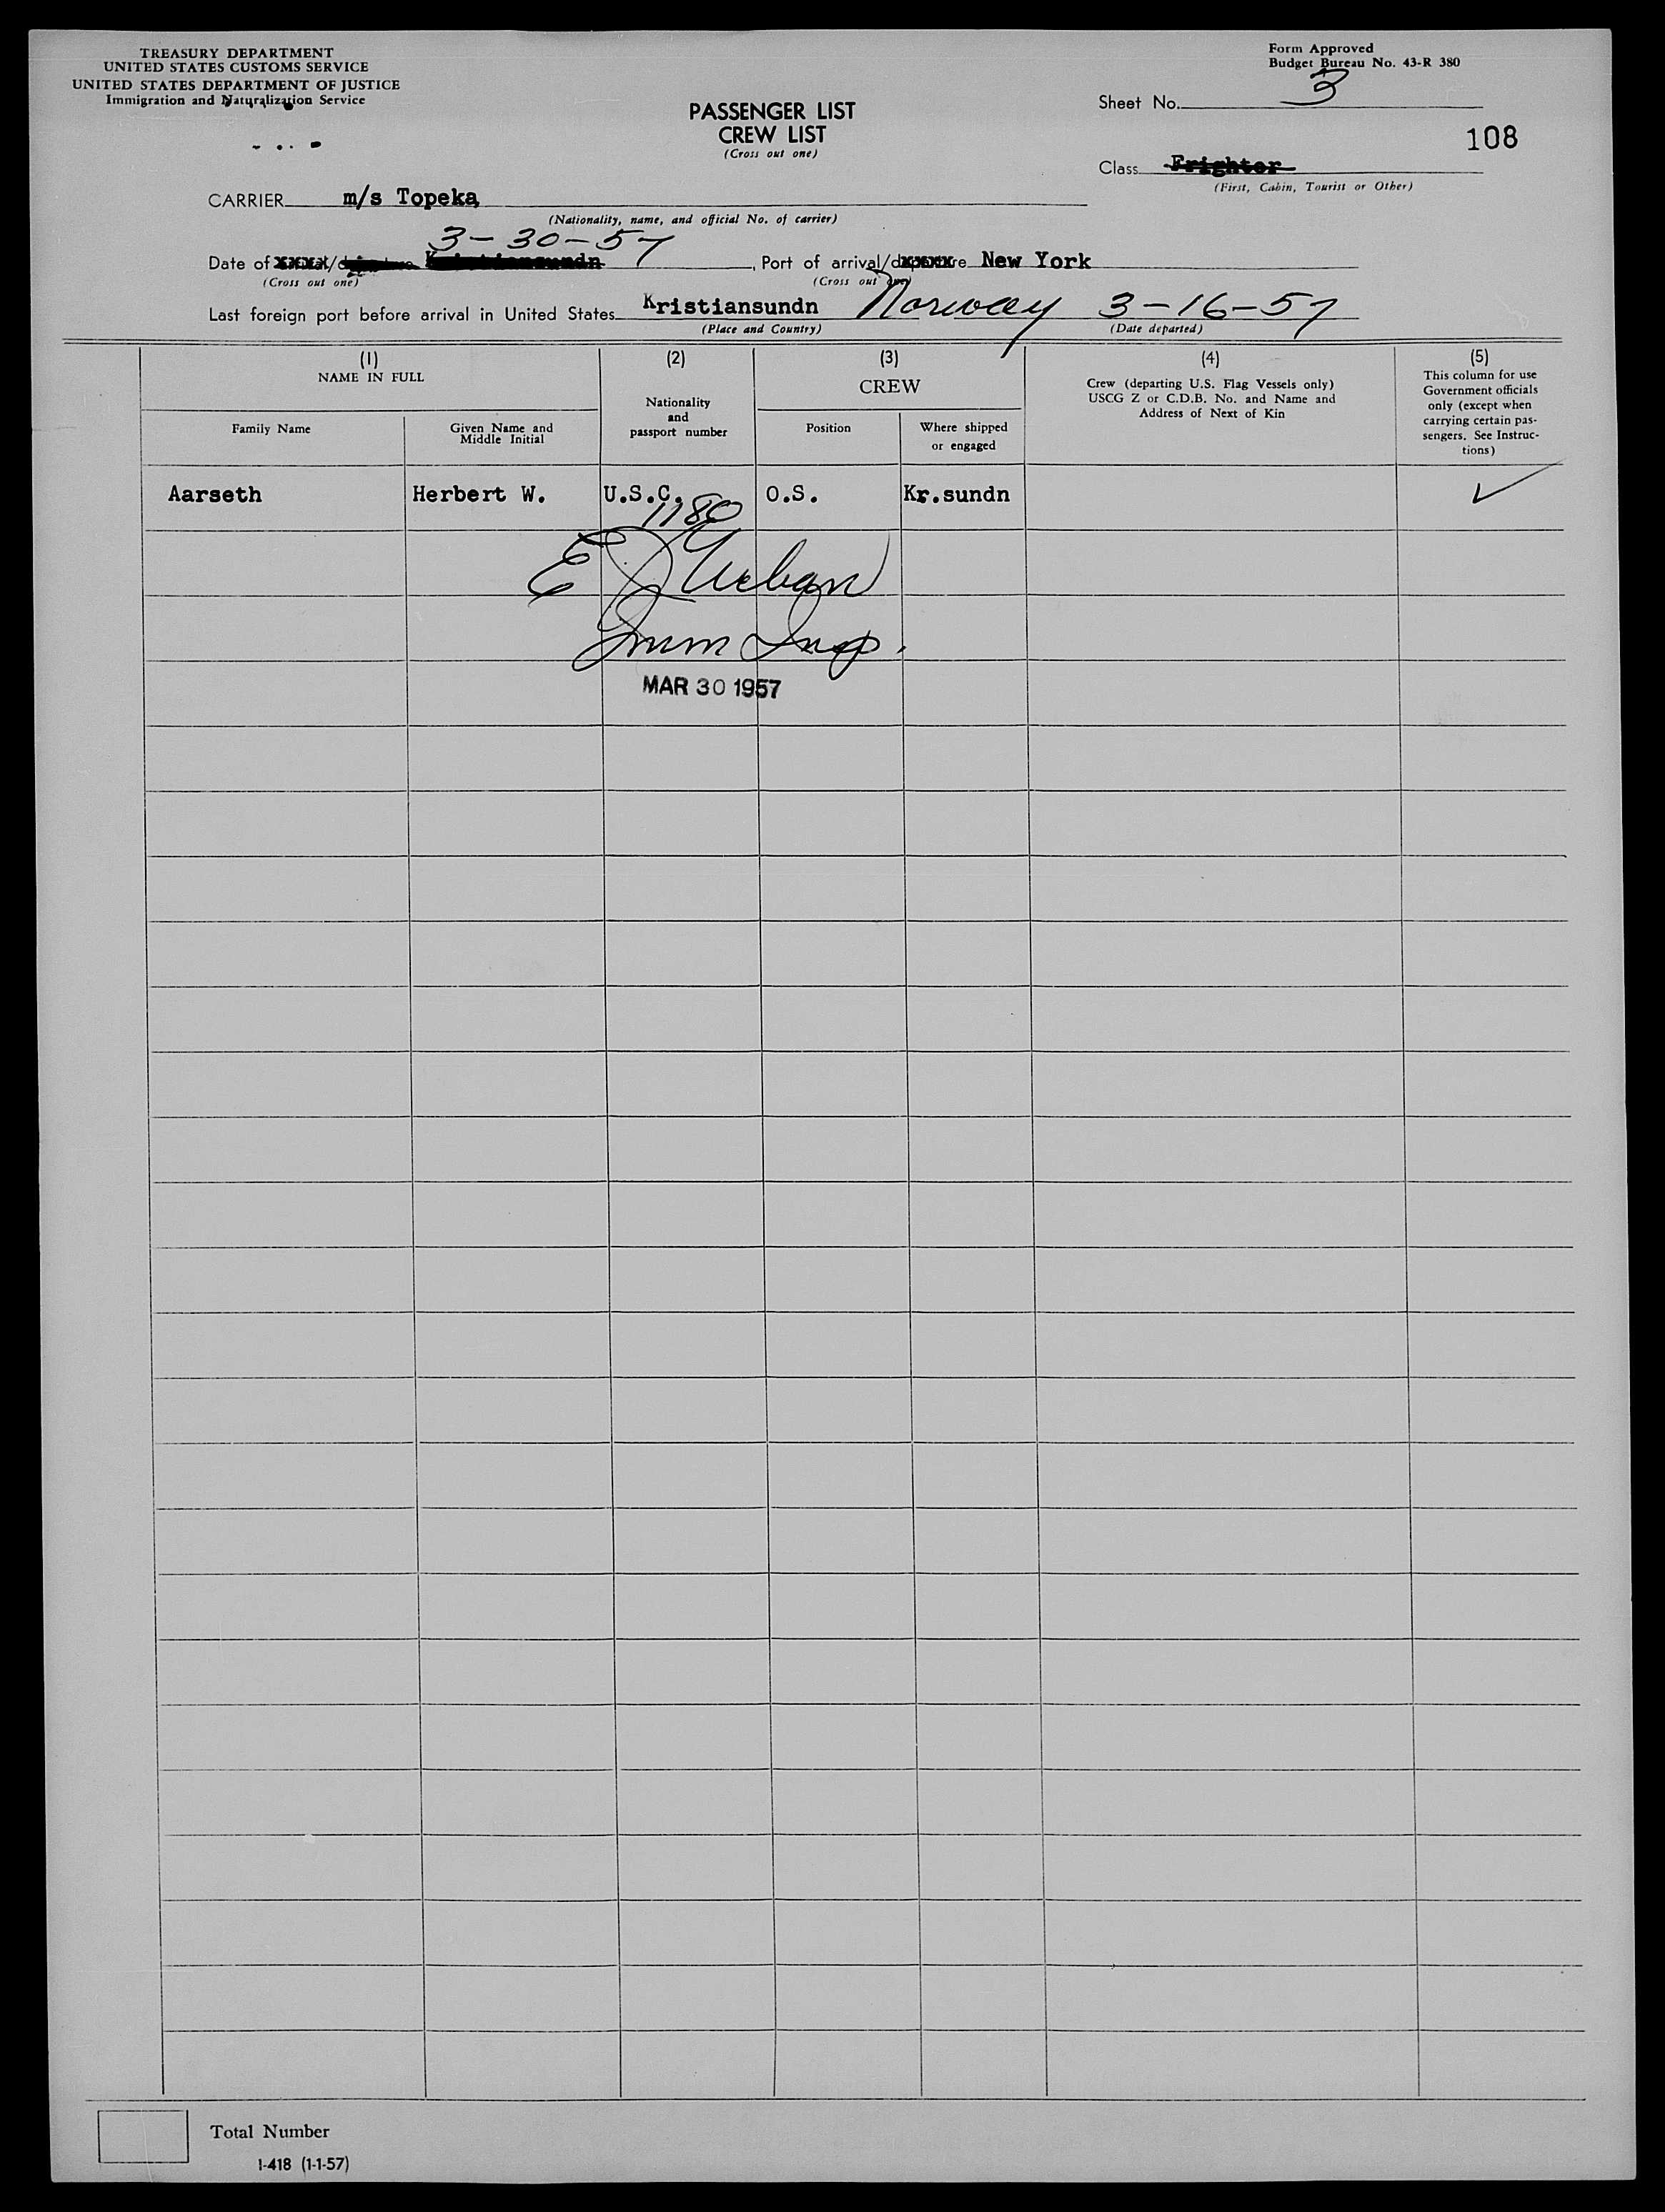 TREASURY DEPARTMENT
UNITED STATES CUSTOMS SERVICE
UNITED STATES DEPARTMENT OF JUSTICE
Immigration and Naturalization Service
Form Approved
Budget Bureau No. 43-R 380
Sheet No. 3
PASSENGER LIST
CREW LIST
(Cross out one)
108
Class Frighter
(First, Cabin, Tourist or Other)
CARRIER m/s Topeka
(Nationality, name, and official No. of carrier)
3-30-57
Date of xxxx/ Kristiansundn, Port of arrival/dxxxxre New York
(Cross out one) (Cross out one)
Last foreign port before arrival in United States Kristiansundn Norway 3-16-57
(Place and Country) (Date departed)
(1) (2) (3) (4) (5)
NAME IN FULL
Family Name
Given Name and
Middle Initial
Nationality
and
passport number
CREW
Position
Where shipped
or engaged
Crew (departing U.S. Flag Vessels only)
USCG Z or C.D.B. No. and Name and
Address of Next of Kin
This column for use
Government officials
only (except when
carrying certain pas-
sengers. See Instruc-
tions)
Aarseth Herbert W. U.S.C. O.S. Kr.sundn ✓
1180
E J Urban
Imm Insp.
MAR 30 1957
Total Number
I-418 (1-1-57)